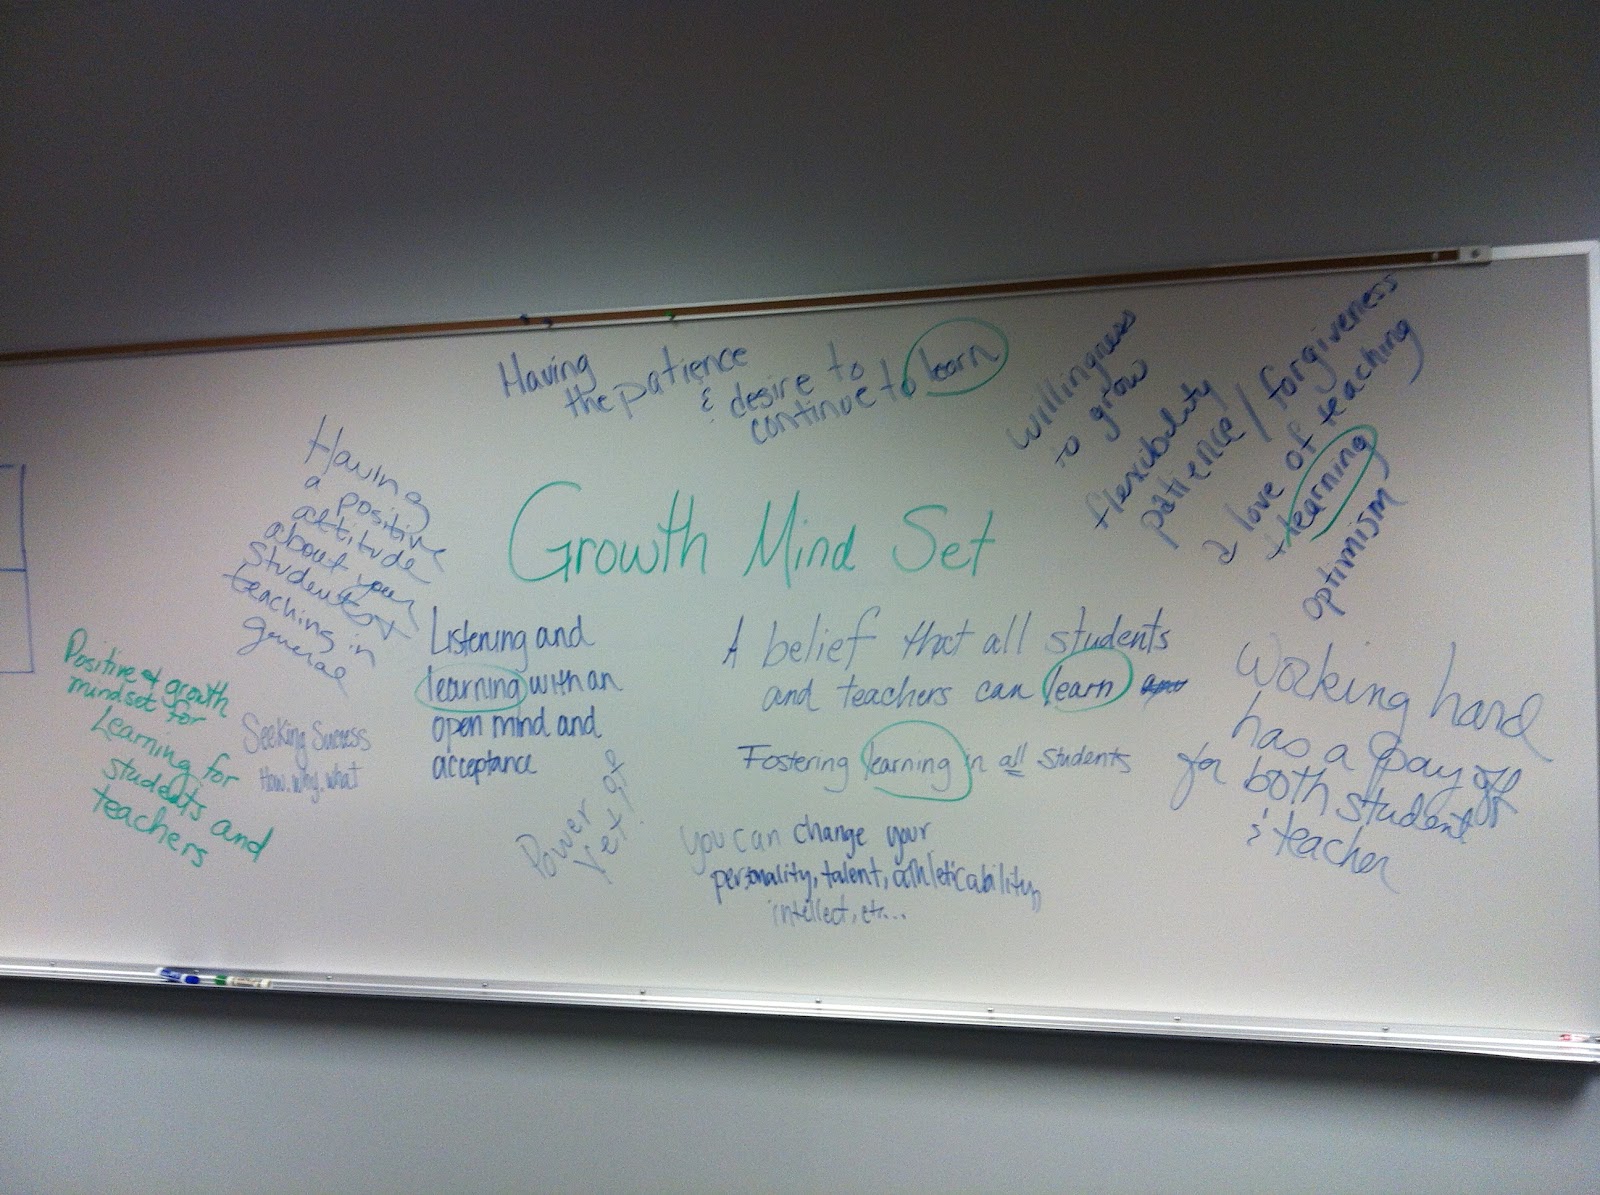 Having
the patience
& desire to
continue to learn
willingness
to grow
flexibility
patience / forgiveness
a love of teaching
+ learning
optimism
Having
a positive
attitude
about your
students +
teaching in
general
Growth Mind Set
Listening and
learning with an
open mind and
acceptance
A belief that all students
and teachers can learn
Fostering learning in all students
Working hard
has a pay off
for both student
& teacher
Positive + growth
mindset for
Learning for
students and
teachers
Seeking Success
How, why, what
Power of
Yet!
you can change your
personality, talent, athletic ability,
intellect, etc...